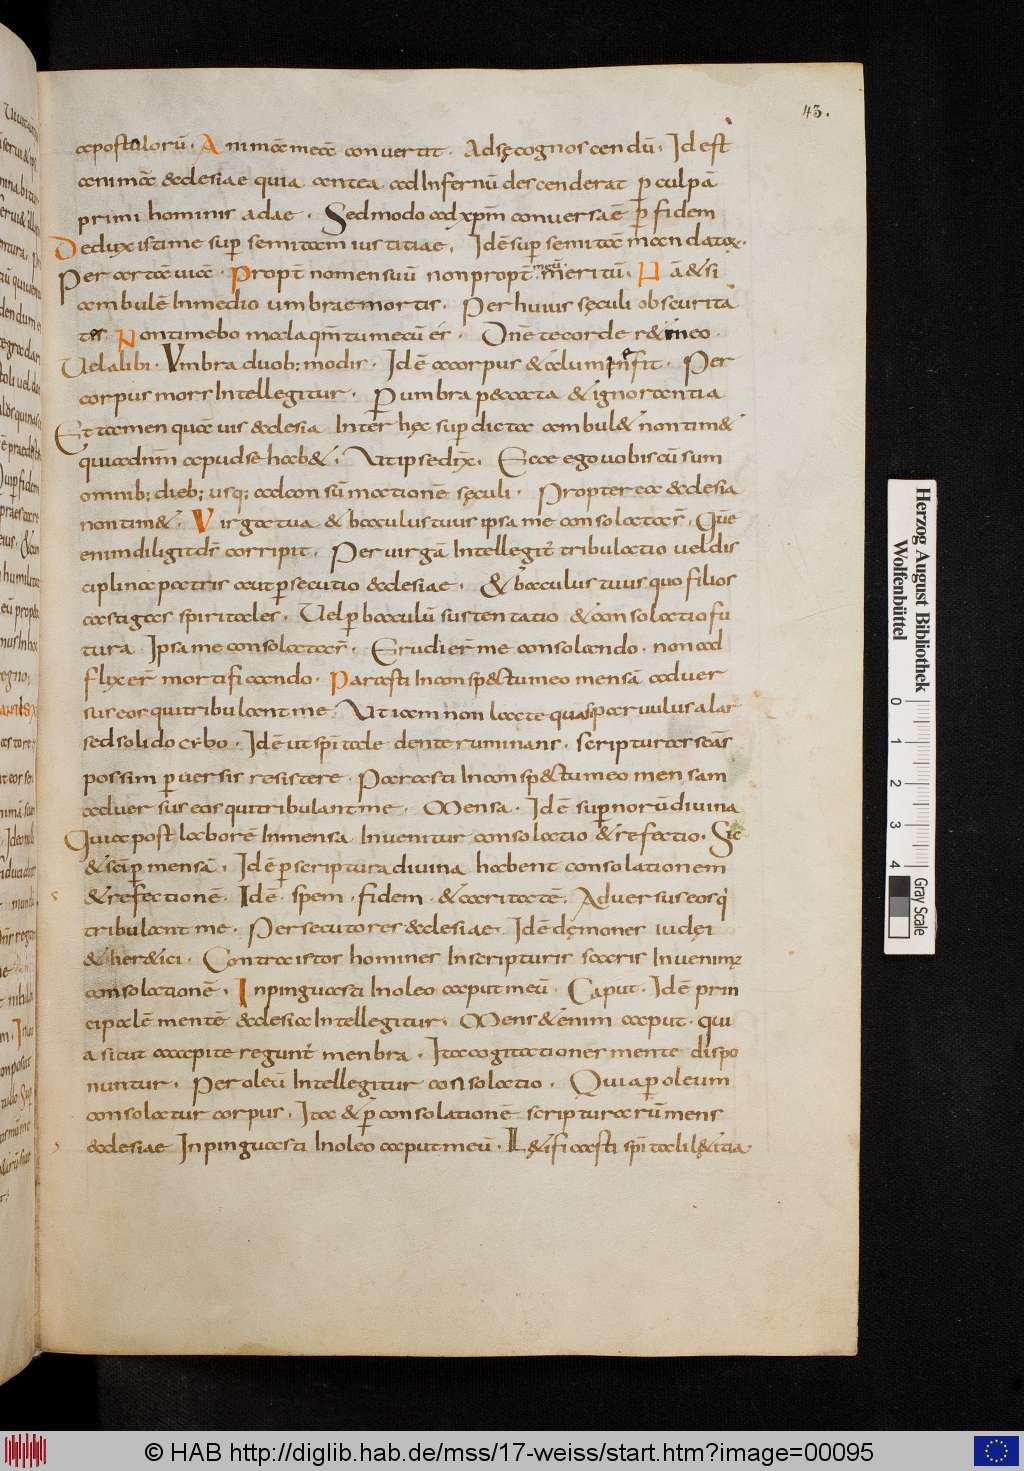 43.
apostolorū. Animā meā convertit. Adsę cognoscendū. Id est
animā ecclesiae quia antea ad infernū descenderat p culpā
primi hominis adae. Sed modo ad xpm̄ conversa ē p fidem
Deduxisti me sup semitam iustitiae. Id ē sup semitā mandatoꝝ.
Per artā uiā. Propt nomen suū non propt meū meritū. Nā & si
ambulē In medio umbrae mortis. Per huius sęculi obscurita
tes. Non timebo mala qm̄ tu mecū es. Dn̄e te corde r&ineo.
Uel alibi. Umbra duob; modis. Id ē a corpus & a lumine fit. Per
corpus mors Intellegitur. P umbra peccata & ignorantia
Et tamen quāuis ecclesia Inter hęc supdicta ambul& non tim&
quia dn̄m apud se hab&. Ut ipse dix. Ecce ego vobiscū sum
omnib; dieb; usq; ad consūmationē sęculi. Propterea ecclesia
non tim&. Virga tua & baculus tuus ipsa me consolata s̄. Quē
enim diligit ds̄ corripit. Per virgā Intellegit tribulatio uel dis
ciplina patris aut psecutio ecclesiae. & baculus tuus quo filios
castigas spiritales. Uel p baculū sustentatio & consolatio fu
tura Ipsa me consolata s̄. Erudier me consolando. non ad
flixer mortificando. Parasti In conspectu meo mensā aduer
sus eos qui tribulant me. Ut iam non lacte quasi parvulus alar
sed solido cibo. Id ē ut spītale dente ruminans. scripturas scās
possim pversis resistere. Parasti In conspectu meo mensam
aduersus eos qui tribulant me. Mensa. Id ē supnorū diuina
Quia post laborē In mensa Invenitur consolatio & refectio. Sic
& sēip mensā. Id ē p scriptura divina habent consolationem
& refectionē. Id ē spem. fidem. & caritatē. Adversus eos q̇
tribulant me. Persecutores ecclesiae. Id ē dęmones iudęi
& her&ici. Contra istos homines In scripturis sacris Invenim;
consolationē. Inpinguasti In oleo caput meū. Caput. Id ē prin
cipalē mentē ecclesia Intellegitur. Mens & enim caput. qui
a sicut a capite regunt menbra. Ita cogitationes mente dispo
nuntur. Per oleū Intellegitur consolatio. Quia p oleum
consolatur corpus. Ita & p consolationē scripturarū mens
ecclesiae Inpinguasti In oleo caput meū. L&ificasti spītali l&itia.
Herzog August Bibliothek
Wolfenbüttel
0 1 2 3 4
Gray Scale
© HAB http://diglib.hab.de/mss/17-weiss/start.htm?image=00095